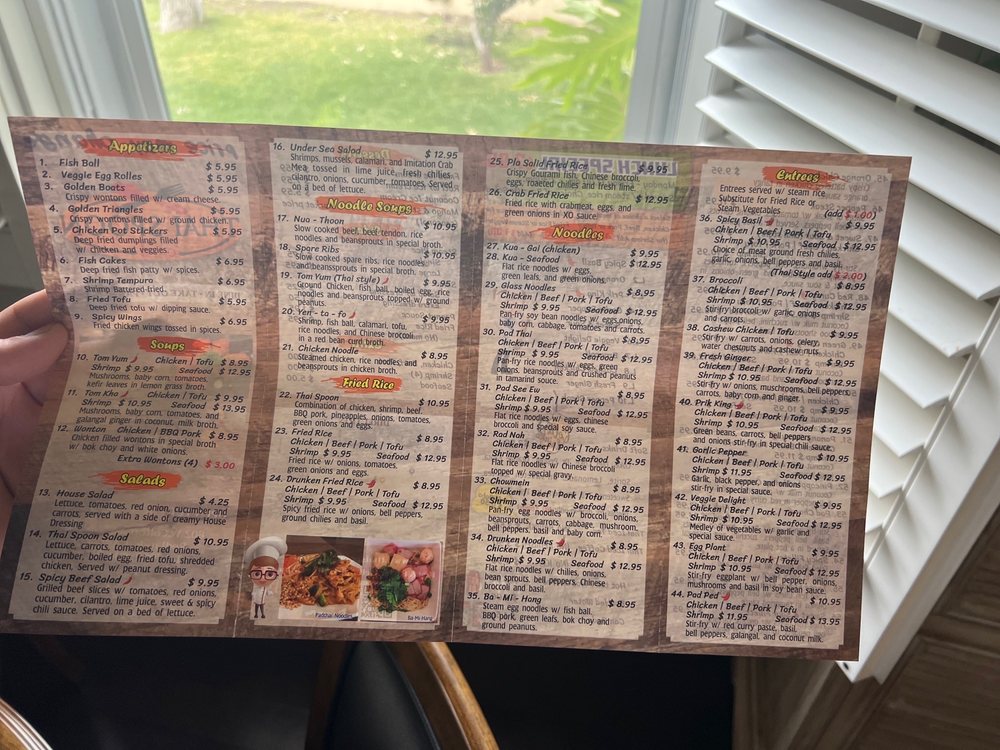 Appetizers
1. Fish Ball $ 5.95
2. Veggie Egg Rolles $ 5.95
3. Golden Boats $ 5.95
Crispy wontons filled w/ cream cheese.
4. Golden Triangles $ 5.95
Crispy wontons filled w/ ground chicken.
5. Chicken Pot Stickers $ 5.95
Deep fried dumplings filled
w/ chicken and veggies.
6. Fish Cakes $ 6.95
Deep fried fish patty w/ spices.
7. Shrimp Tempura $ 6.95
Shrimp Battered fried.
8. Fried Tofu $ 5.95
Deep fried tofu w/ dipping sauce.
9. Spicy Wings $ 6.95
Fried chicken wings tossed in spices.
Soups
10. Tom Yum Chicken | Tofu $ 8.95
Shrimp $ 9.95 Seafood $ 12.95
Mushrooms, baby corn, tomatoes,
kefir leaves in lemon grass broth.
11. Tom Kha Chicken | Tofu $ 9.95
Shrimp $ 10.95 Seafood $ 13.95
Mushrooms, baby corn, tomatoes, and
galangal ginger in coconut, milk broth.
12. Wonton Chicken | BBQ Pork $ 8.95
Chicken filled wontons in special broth
w/ bok choy and white onions.
Extra Wontons (4) $ 3.00
Salads
13. House Salad $ 4.25
Lettuce, tomatoes, red onion, cucumber and
carrots, served with a side of creamy House
Dressing
14. Thai Spoon Salad $ 10.95
Lettuce, carrots, tomatoes, red onions,
cucumber, boiled egg, fried tofu, shredded
chicken, Served w/ peanut dressing.
15. Spicy Beef Salad $ 9.95
Grilled beef slices w/ tomatoes, red onions,
cucumber, cilantro, lime juice, sweet & spicy
chili sauce. Served on a bed of lettuce.
16. Under Sea Salad $ 12.95
Shrimps, mussels, calamari, and Imitation Crab
Mea, tossed in lime juice, fresh chilies,
cilantro, onions, cucumber, tomatoes, Served
on a bed of lettuce.
Noodle Soups
17. Nuo - Thoon $ 10.95
Slow cooked beef, beef tendon, rice
noodles and beansprouts in special broth.
18. Spare Ribs $ 10.95
Slow cooked spare ribs, rice noodles
and beansprouts in special broth.
19. Tom Yum (Thai style) $ 9.95
Ground Chicken, fish ball, boiled egg, rice
noodles and beansprouts topped w/ ground
peanuts.
20. Yen - ta - fo $ 9.95
Shrimp, fish ball, calamari, tofu,
rice noodles, and Chinese broccoli
in a red bean curd broth.
21. Chicken Noodle $ 8.95
Steamed chicken, rice noodles, and
beansprouts in chicken broth.
Fried Rice
22. Thai Spoon $ 10.95
Combination of chicken, shrimp, beef,
BBQ pork, pineapples, onions, tomatoes,
green onions and eggs.
23. Fried Rice $ 8.95
Chicken | Beef | Pork | Tofu
Shrimp $ 9.95 Seafood $ 12.95
Fried rice w/ onions, tomatoes,
green onions and eggs.
24. Drunken Fried Rice $ 8.95
Chicken | Beef | Pork | Tofu
Shrimp $ 9.95 Seafood $ 12.95
Spicy fried rice w/ onions, bell peppers,
ground chilies and basil.
Padthai Noodles
Ba-Mi-Hang
25. Pla Salid Fried Rice $ 9.95
Crispy Gourami fish, Chinese broccoli,
eggs, roasted chilies and fresh lime.
26. Crab Fried Rice $ 12.95
Fried rice with crabmeat, eggs, and
green onions in XO sauce
Noodles
27. Kua - Gai (chicken) $ 9.95
28. Kua - Seafood $ 12.95
Flat rice noodles w/ eggs,
green leafs, and green onions.
29. Glass Noodles $ 8.95
Chicken | Beef | Pork | Tofu
Shrimp $ 9.95 Seafood $ 12.95
Pan-fry soy bean noodles w/ eggs, onions,
baby corn, cabbage, tomatoes and carrots.
30. Pad Thai $ 8.95
Chicken | Beef | Pork | Tofu
Shrimp $ 9.95 Seafood $ 12.95
Pan-fry rice noodles w/ eggs, green
onions, beansprouts and crushed peanuts
in tamarind sauce.
31. Pad See Ew $ 8.95
Chicken | Beef | Pork | Tofu
Shrimp $ 9.95 Seafood $ 12.95
Flat rice noodles w/ eggs, chinese
broccoli and special soy sauce.
32. Rad Nah $ 8.95
Chicken | Beef | Pork | Tofu
Shrimp $ 9.95 Seafood $ 12.95
Flat rice noodles w/ Chinese broccoli
topped w/ special gravy.
33. Chowmein $ 8.95
Chicken | Beef | Pork | Tofu
Shrimp $ 9.95 Seafood $ 12.95
Pan-fry egg noodles w/ broccoli, onions,
beansprouts, carrots, cabbage, mushroom,
bell peppers, basil and baby corn.
34. Drunken Noodles $ 8.95
Chicken | Beef | Pork | Tofu
Shrimp $ 9.95 Seafood $ 12.95
Flat rice noodles w/ chilies, onions,
bean sprouts, bell peppers, Chinese
broccoli and basil.
35. Ba - Mi - Hang $ 8.95
Steam egg noodles w/ fish ball,
BBQ pork, green leafs, bok choy and
ground peanuts.
Entrees
Entrees served w/ steam rice,
Substitute for Fried Rice or
Steam Vegetables (add $ 1.00)
36. Spicy Basil $ 9.95
Chicken | Beef | Pork | Tofu
Shrimp $ 10.95 Seafood $ 12.95
Choice of meat ground fresh chilies,
garlic, onions, bell peppers and basil.
(Thai Style add $ 2.00)
37. Broccoli $ 8.95
Chicken | Beef | Pork | Tofu
Shrimp $ 10.95 Seafood $ 12.95
Stir-fry broccoli w/ garlic, onions
and carrots.
38. Cashew Chicken | Tofu $ 9.95
Stir-fry w/ carrots, onions, celery,
water chestnuts and cashew nuts.
39. Fresh Ginger $ 9.95
Chicken | Beef | Pork | Tofu
Shrimp $ 10.95 Seafood $ 12.95
Stir-fry w/ onions, mushrooms, bell peppers,
carrots, baby corn and ginger.
40. Prik King $ 9.95
Chicken | Beef | Pork | Tofu
Shrimp $ 10.95 Seafood $ 12.95
Green beans, carrots, bell peppers
and onions stir-fry in special chili sauce.
41. Garlic Pepper $ 9.95
Chicken | Beef | Pork | Tofu
Shrimp $ 11.95 Seafood $ 12.95
Garlic, black pepper, and onions
stir-fry in special sauce.
42. Veggie Delight $ 9.95
Chicken | Beef | Pork | Tofu
Shrimp $ 10.95 Seafood $ 12.95
Medley of vegetables w/ garlic and
special sauce.
43. Egg Plant $ 9.95
Chicken | Beef | Pork | Tofu
Shrimp $ 10.95 Seafood $ 12.95
Stir-fry eggplant w/ bell pepper, onions,
mushrooms and basil in soy bean sauce.
44. Pad Ped $ 10.95
Chicken | Beef | Pork | Tofu
Shrimp $ 11.95 Seafood $ 13.95
Stir-fry w/ red curry paste, basil,
bell peppers, galangal, and coconut milk.